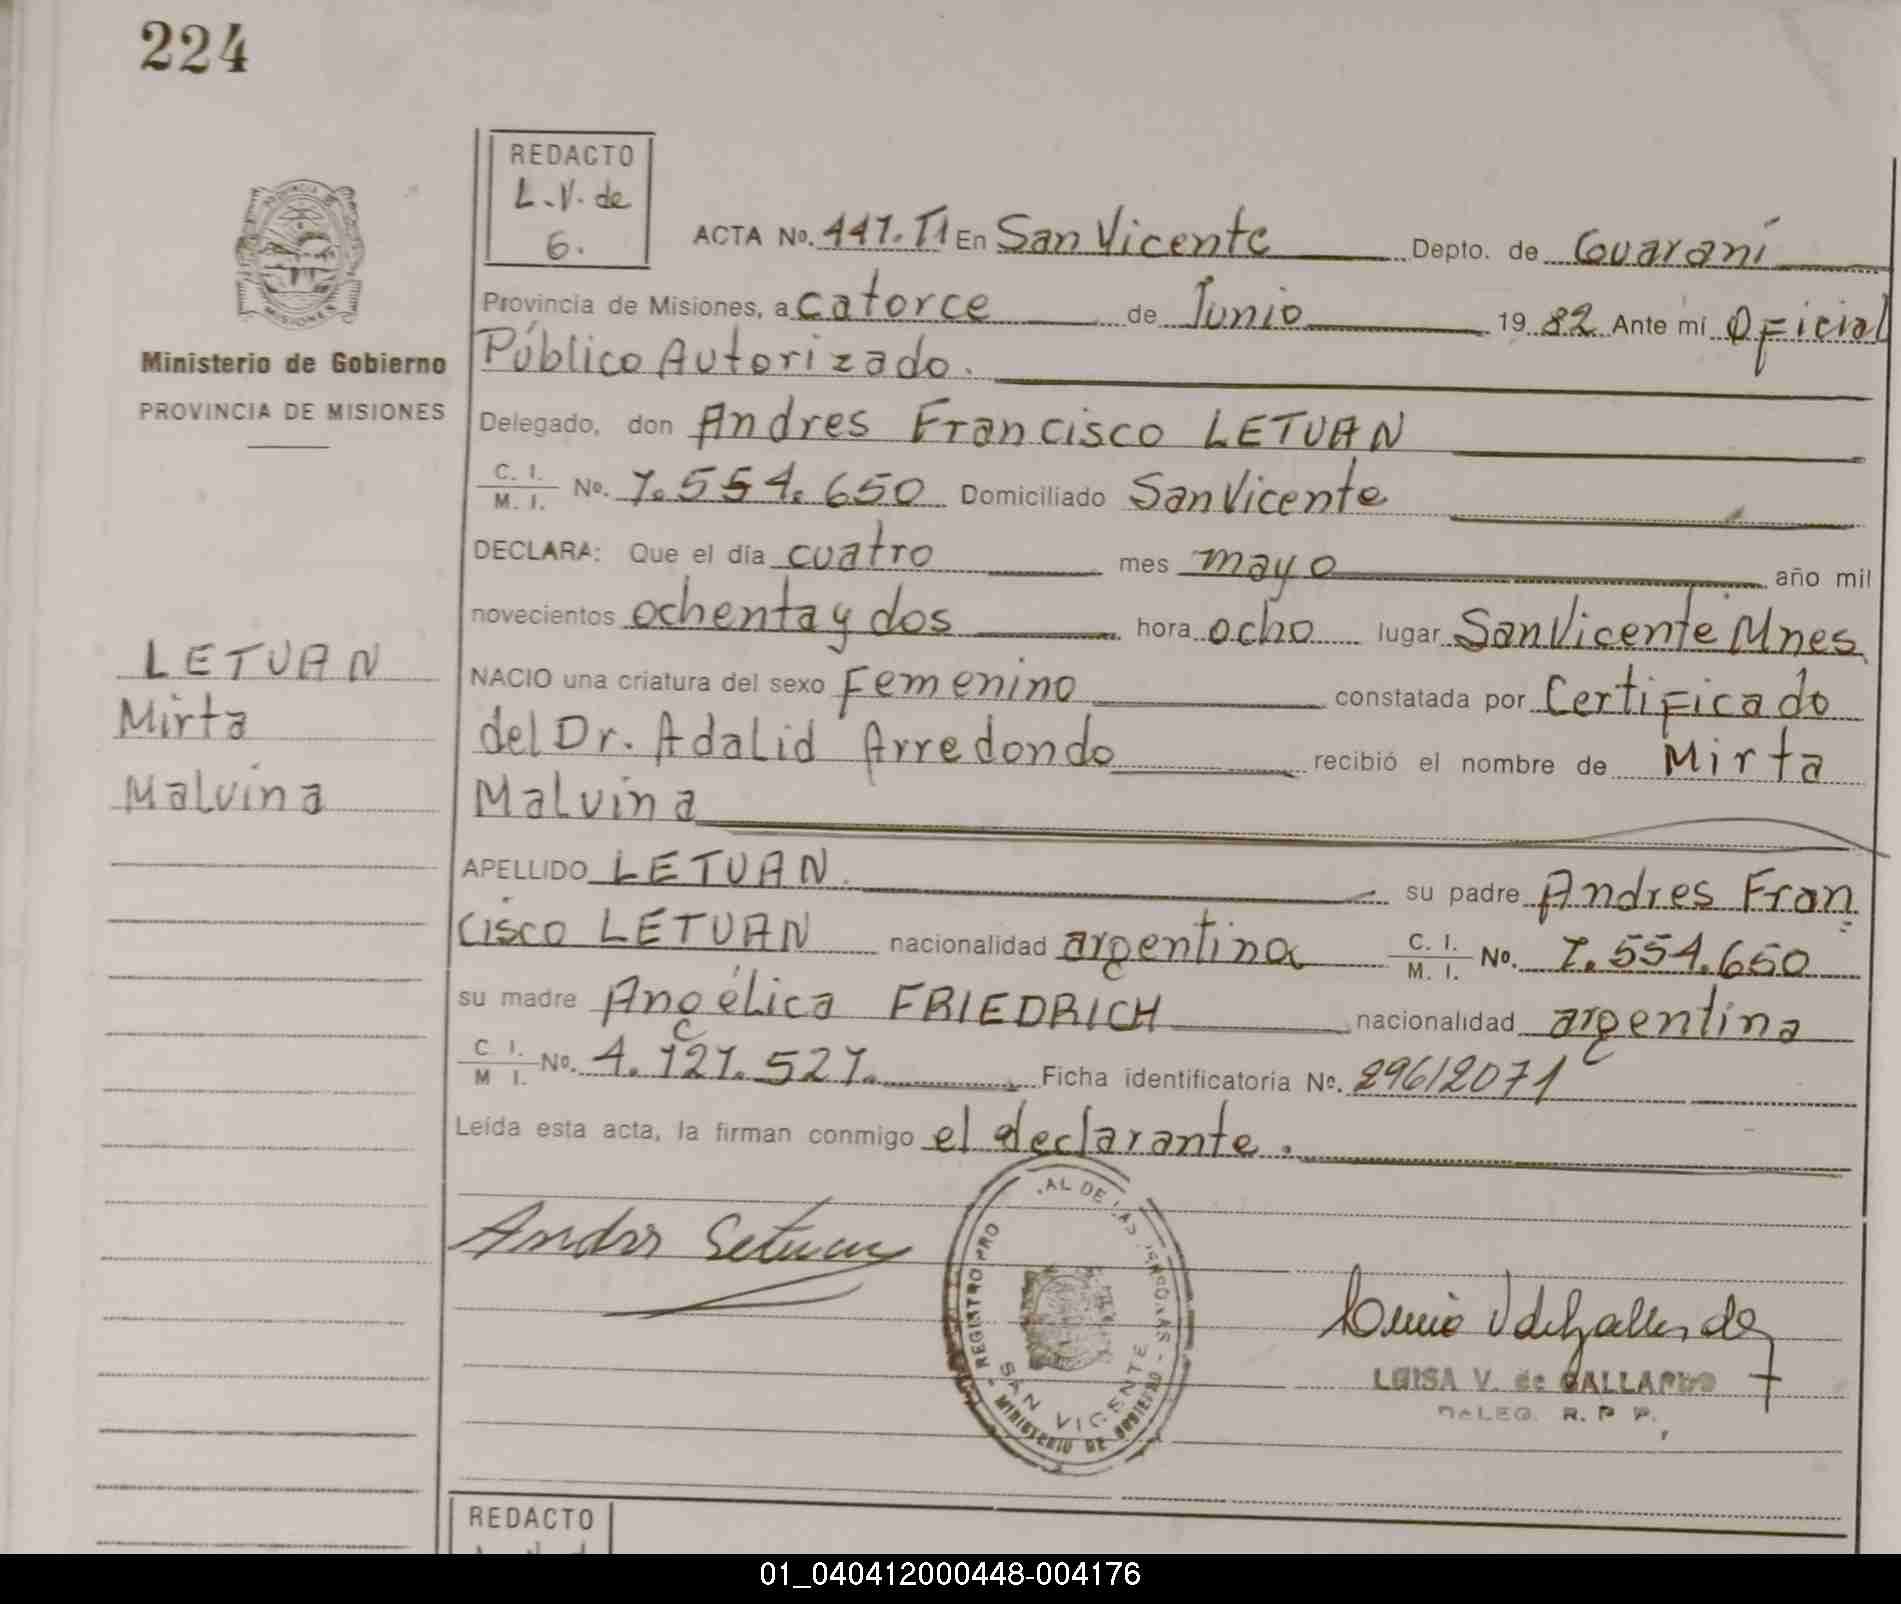 224
REDACTO
L.V. de
G.
ACTA No. 447.T1 En San Vicente Depto. de Guaraní
Provincia de Misiones, a catorce de Junio 1982 Ante mí Oficial
Público Autorizado.
Ministerio de Gobierno
PROVINCIA DE MISIONES
Delegado, don Andres Francisco LETUAN
C. I. / M. I. No. 7.554.650 Domiciliado San Vicente
DECLARA: Que el día cuatro mes mayo año mil
novecientos ochenta y dos hora ocho lugar San Vicente Mnes
LETUAN
Mirta
Malvina
NACIO una criatura del sexo Femenino constatada por Certificado
del Dr. Adalid Arredondo recibió el nombre de Mirta
Malvina
APELLIDO LETUAN. su padre Andres Fran
cisco LETUAN nacionalidad argentina C. I. / M. I. No. 7.554.650
su madre Angélica FRIEDRICH nacionalidad argentina
C I. / M I. No. 4.727.527. Ficha identificatoria No. 29612071
Leída esta acta, la firman conmigo el declarante.
Andres Letuan
REGISTRO PRO AL DE LAS PERSONAS
SAN VICENTE
MINISTERIO DE GOBIERNO
LUISA V. de GALLARDO
DELEG. R. P. P.
REDACTO
01_040412000448-004176